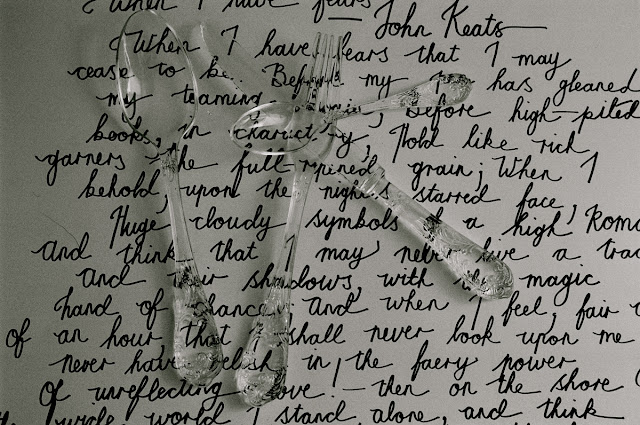 When I have fears
John Keats
When I have fears that I may
cease to be. Before my has gleaned
my teaming Before high-piled
books, in charact'ry, Hold like rich
garners the full-ripened grain; When I
behold, upon the night's starred face,
Huge cloudy symbols of a high Roma
And think that I may never live a trac
And their shadows, with the magic
hand of chance; And when I feel, fair c
of an hour, that I shall never look upon me
never have relish in the faery power
Of unreflecting love! — then on the shore
wide world I stand alone, and think